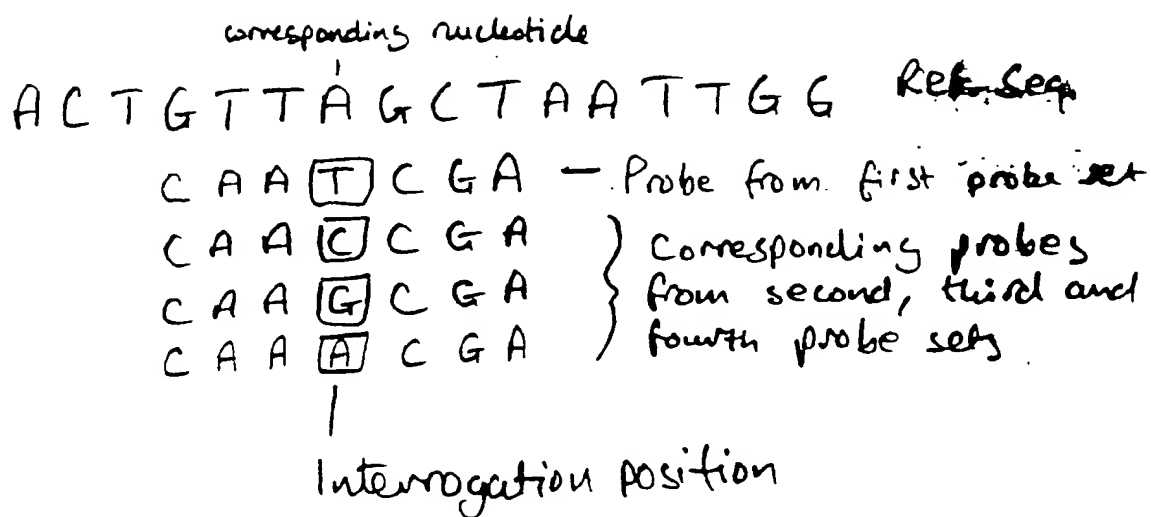 corresponding nucleotide
A C T G T T A G C T A A T T G G Ref. Seq
C A A T C G A – Probe from first probe set
C A A C C G A Corresponding probes
C A A G C G A from second, third and
C A A A C G A fourth probe sets
Interrogation position